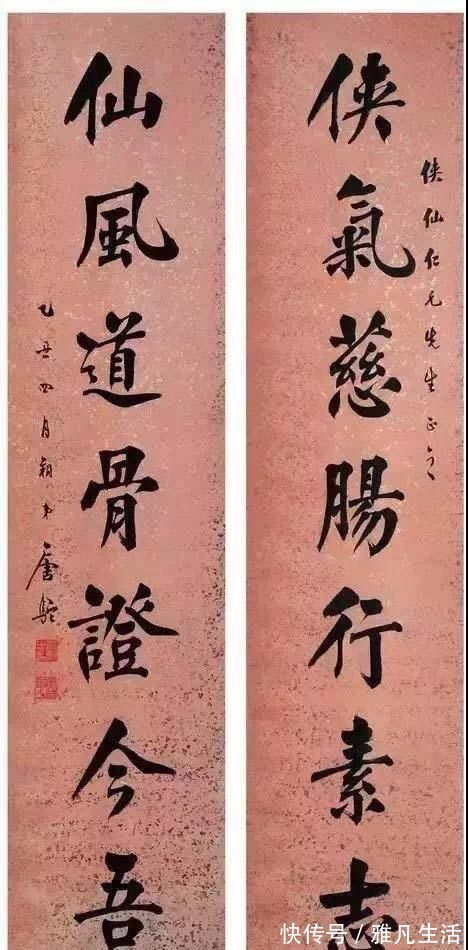 俠仙仁兄先生正之
俠氣慈腸行素志
仙風道骨證今吾
乙丑四月朔弟唐駝
快传号/雅凡生活